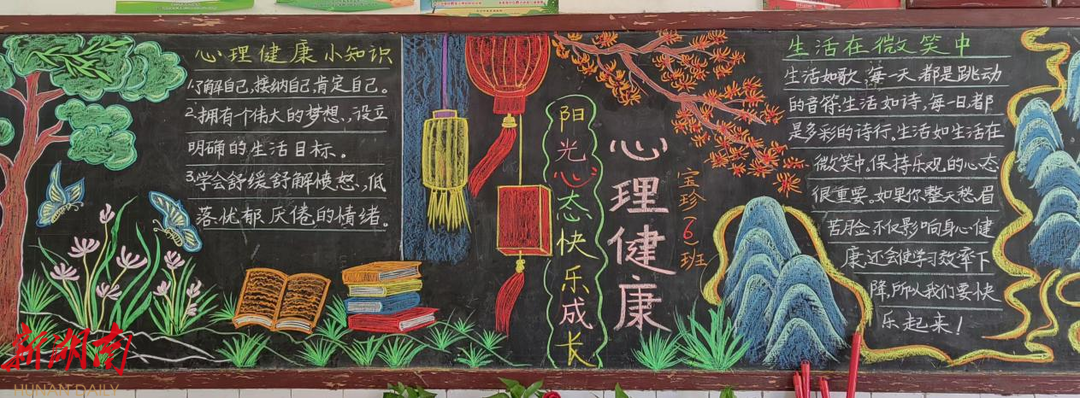 心理健康小知识
1.了解自己,接纳自己,肯定自己。
2.拥有个伟大的梦想、设立
明确的生活目标。
3.学会舒缓舒解愤怒、低
落、忧郁、厌倦的情绪。
阳光心态快乐成长
心理健康
宝珍(6)班
生活在微笑中
生活如歌,每一天都是跳动
的音符,生活如诗,每一日都
是多彩的诗行。生活如生活在
微笑中,保持乐观的心态
很重要。如果你整天愁眉
苦脸,不仅影响身心健
康,还会使学习效率下
降,所以我们要快
乐起来!
新湖南
HUNAN DAILY